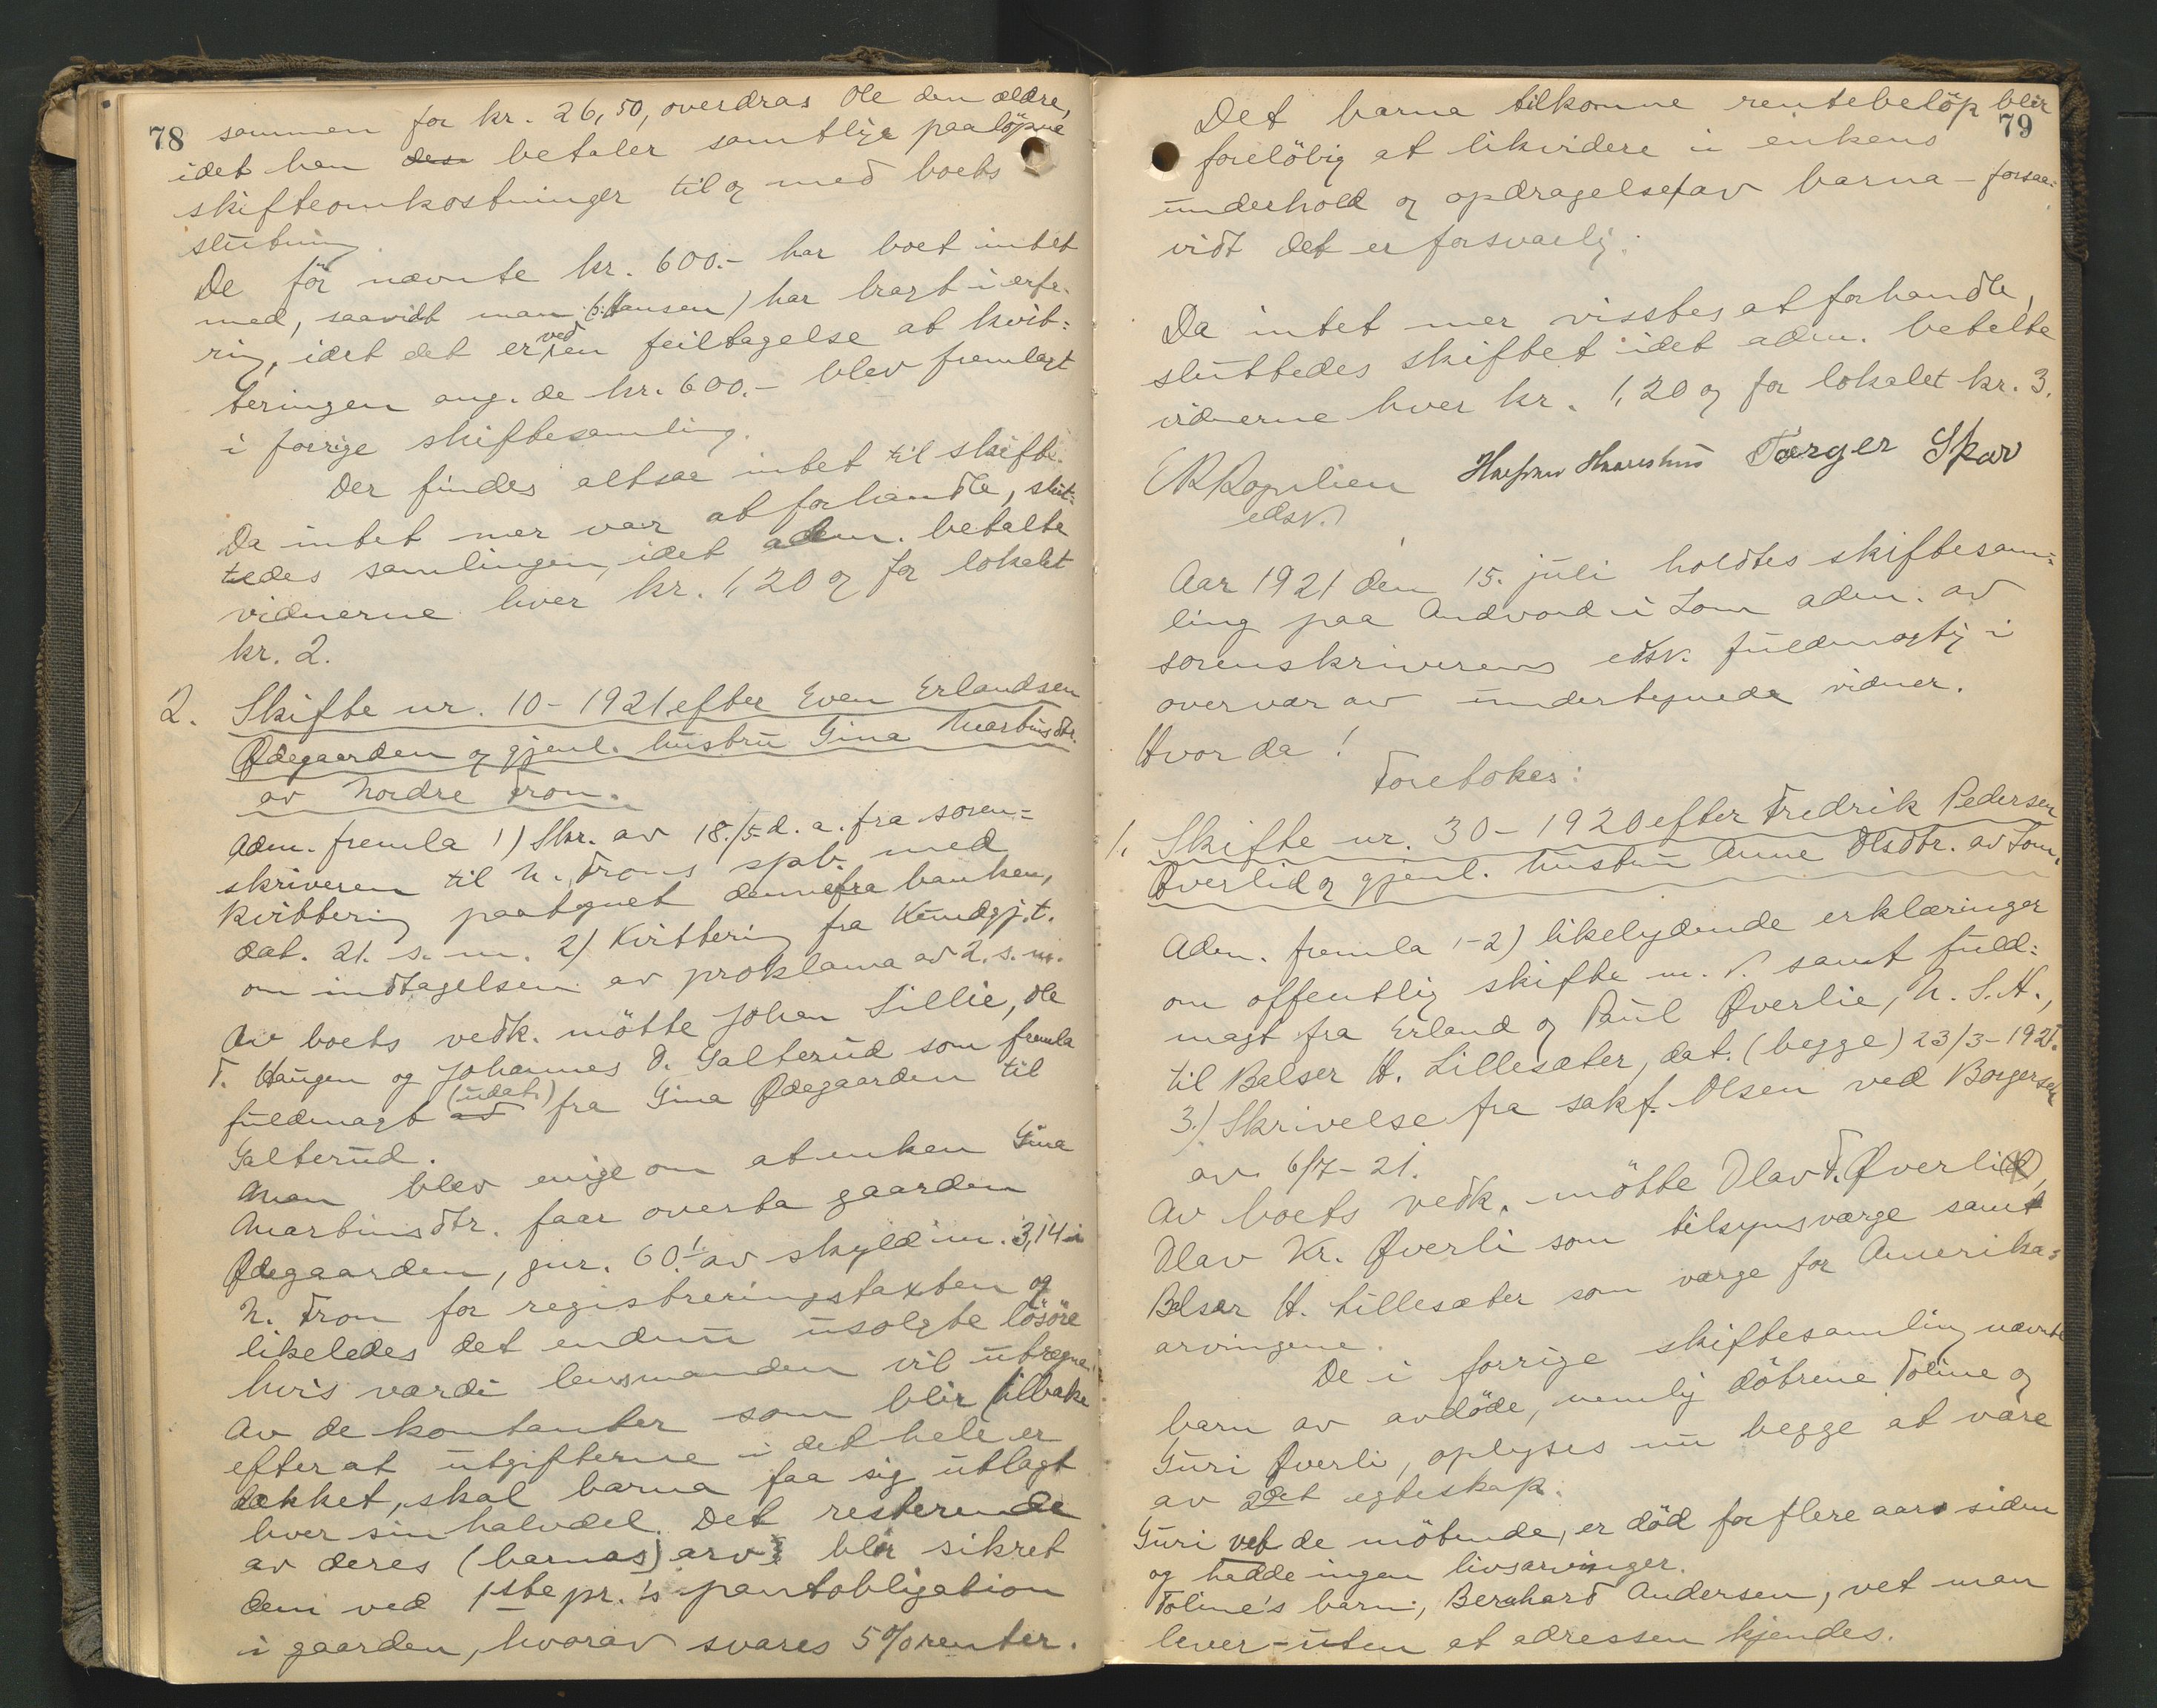 78 sammen for kr. 26,50, overdras Ole den ældre,
idet han betaler samtlige paaløpne
skifteomkostninger til og med boets
slutning.
De før nævnte kr. 600.- har boet intet
med, saavidt man (: Hansen) har bragt i erfa-
ring, idet det er ved en feiltagelse at kvit-
teringen ang. de kr. 600.- blev fremlagt
i forrige skiftesamling.
Der findes altsaa intet til skifte.
Da intet mer var at forhandle, slut-
tedes samlingen, idet adm. betalte
vidnerne hver kr. 1,20 og for lokalet
kr. 2.
2. Skifte nr. 10 - 1921 efter Even Erlandsen
Ødegaarden og gjenl. hustru Gina Martinsdtr.
av Nordre Fron.
Adm. fremla 1) Skr. av 18./5 d. a. fra soren-
skriveren til N. Frons spb. med
kvittering paategnet denne fra banken,
dat. 21. s. m. 2) Kvittering fra Kundgj.t.
om indtagelsen av proklama av 2. s. m.
Av boets vedk. møtte Johan Lillie, Ole
T. Haugen og Johannes O. Galterud som fremla
fuldmagt (udat.) fra Gina Ødegaarden til
Galterud.
Man blev enige om at enken Gina
Martinsdtr. faar overta gaarden
Ødegaarden, gnr. 60.1 av skyld m. 3,14 i
N. Fron for registreringstaxten og
likeledes det endnu usolgte løsøre
hvis værdi lensmanden vil utregne.
Av de kontanter som blir tilbake
efter at utgifterne i det hele er
dækket, skal barna faa sig utlagt
hver sin halvdel. Det resterende
av deres (barnas) arv blir sikret
dem ved 1ste pr.'s pantobligation
i gaarden, hvorav svares 5% renter.
79
Det barna tilkomne rentebeløp blir
foreløbig at likvidere i enkens
underhold og opdragelse av barna - forsaa-
vidt det er forsvarlig.
Da intet mer visstes at forhandle,
sluttedes skiftet idet adm. betalte
vidnerne hver kr. 1,20 og for lokalet kr. 3.
Torger Skar
edsv.
Aar 1921 den 15. juli holdtes skiftesam-
ling paa Andvord i Lom adm. av
sorenskriverens edsv. fuldmægtig i
overvær av undertegnede vidner.
Hvor da!
Foretokes:
1. Skifte nr. 30 - 1920 efter Fredrik Pedersen
Øverlid og gjenl. hustru Anne Olsdtr. av Lom.
Adm. fremla 1-2) likelydende erklæringer
om offentlig skifte m. v. samt fuld-
magt fra Erland og Paul Øverlie, N. S. A.,
til Balser H. Lillesæter, dat. (begge) 23/3 - 1921.
3.) Skrivelse fra sakf. Olsen ved Borgersen
av 6/7 - 21.
Av boets vedk. møtte Olav F. Øverli(d),
Olav Kr. Øverli som tilsynsværge samt
Balser H. Lillesæter som værge for Amerika-
arvingene.
De i forrige skiftesamling nævnte
barn av avdøde, nemlig døtrene Toline og
Guri Øverli, oplyses nu begge at være
av 2det egteskap.
Guri vet de møtende, er død for flere aar siden
og hadde ingen livsarvinger.
Toline's barn, Bernhard Andersen, vet man
lever - uten at adressen kjendes.